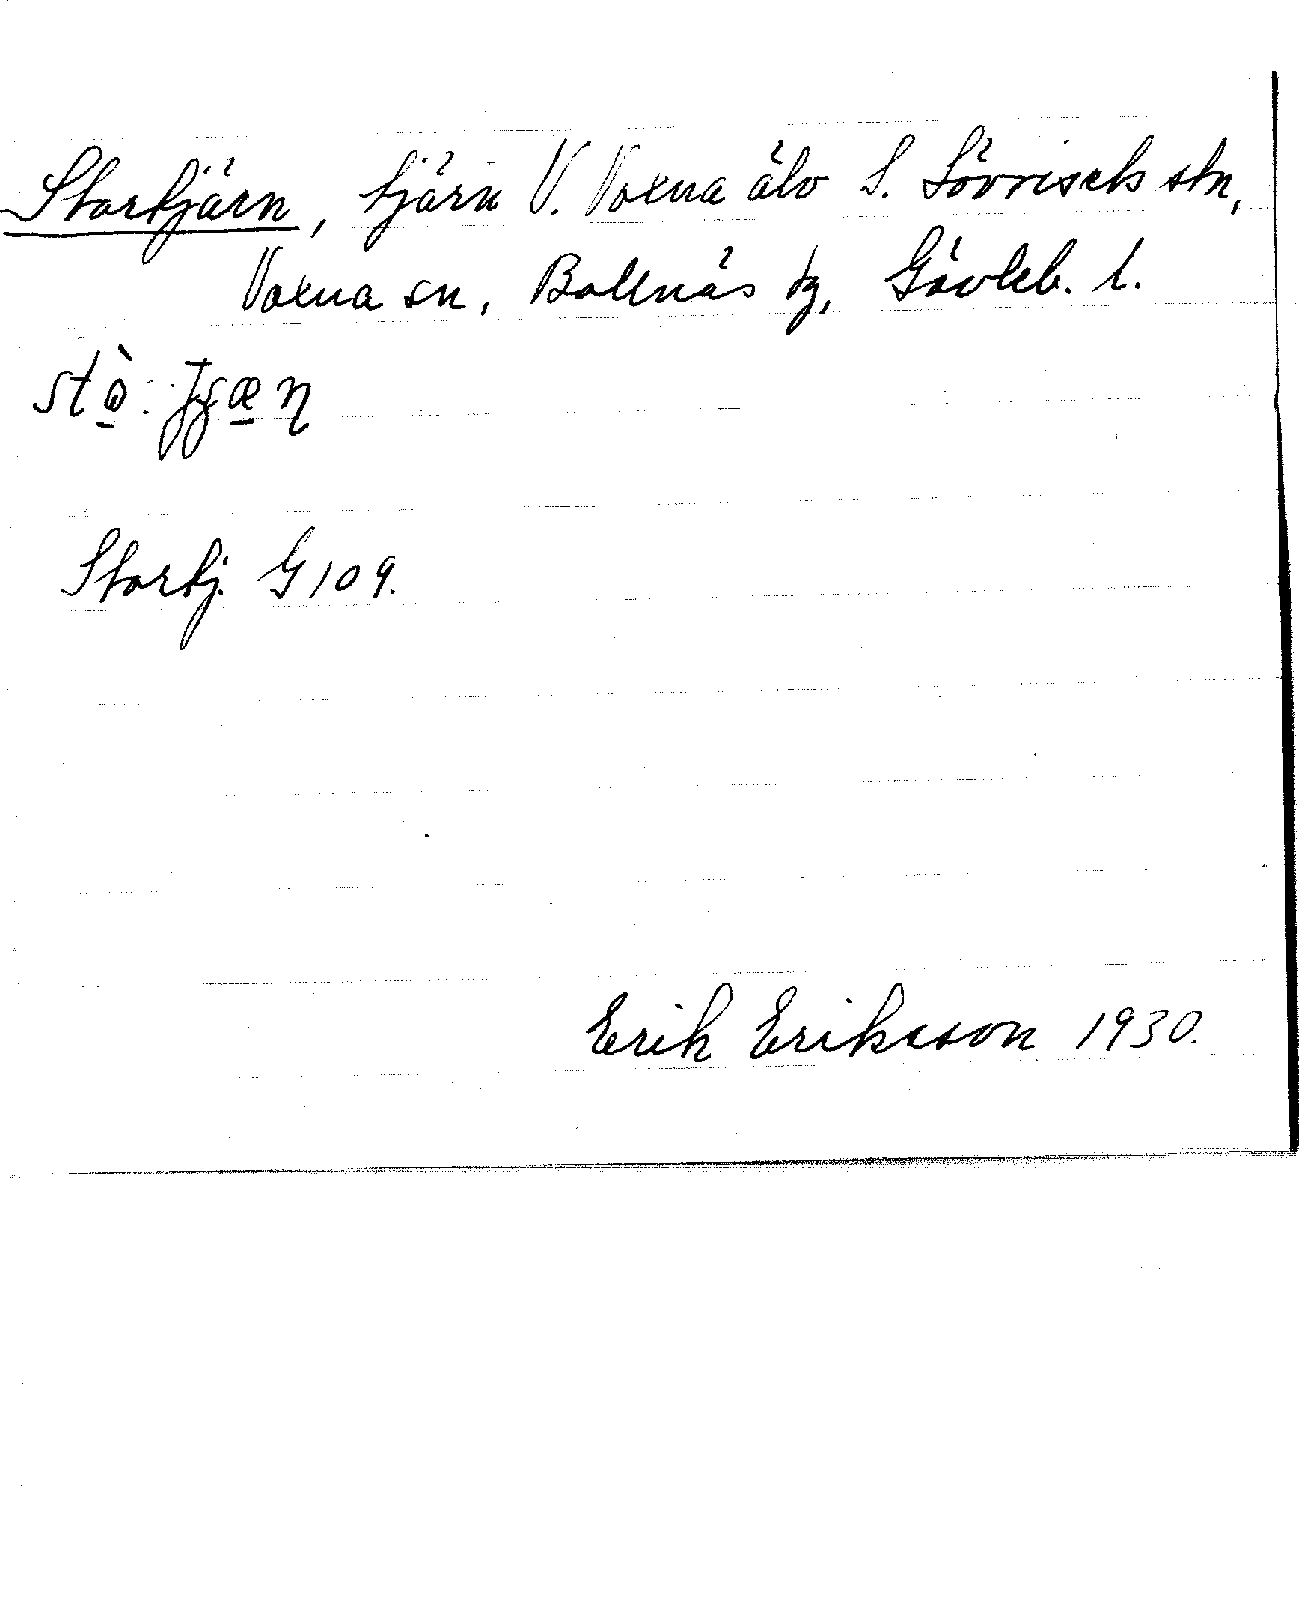 Stortjärn, tjärn V. Voxna älv S. Lövriseds stn,
Voxna sn, Bollnäs tg, Gävleb. l.
Stortj. G 109.
Erik Eriksson 1930.